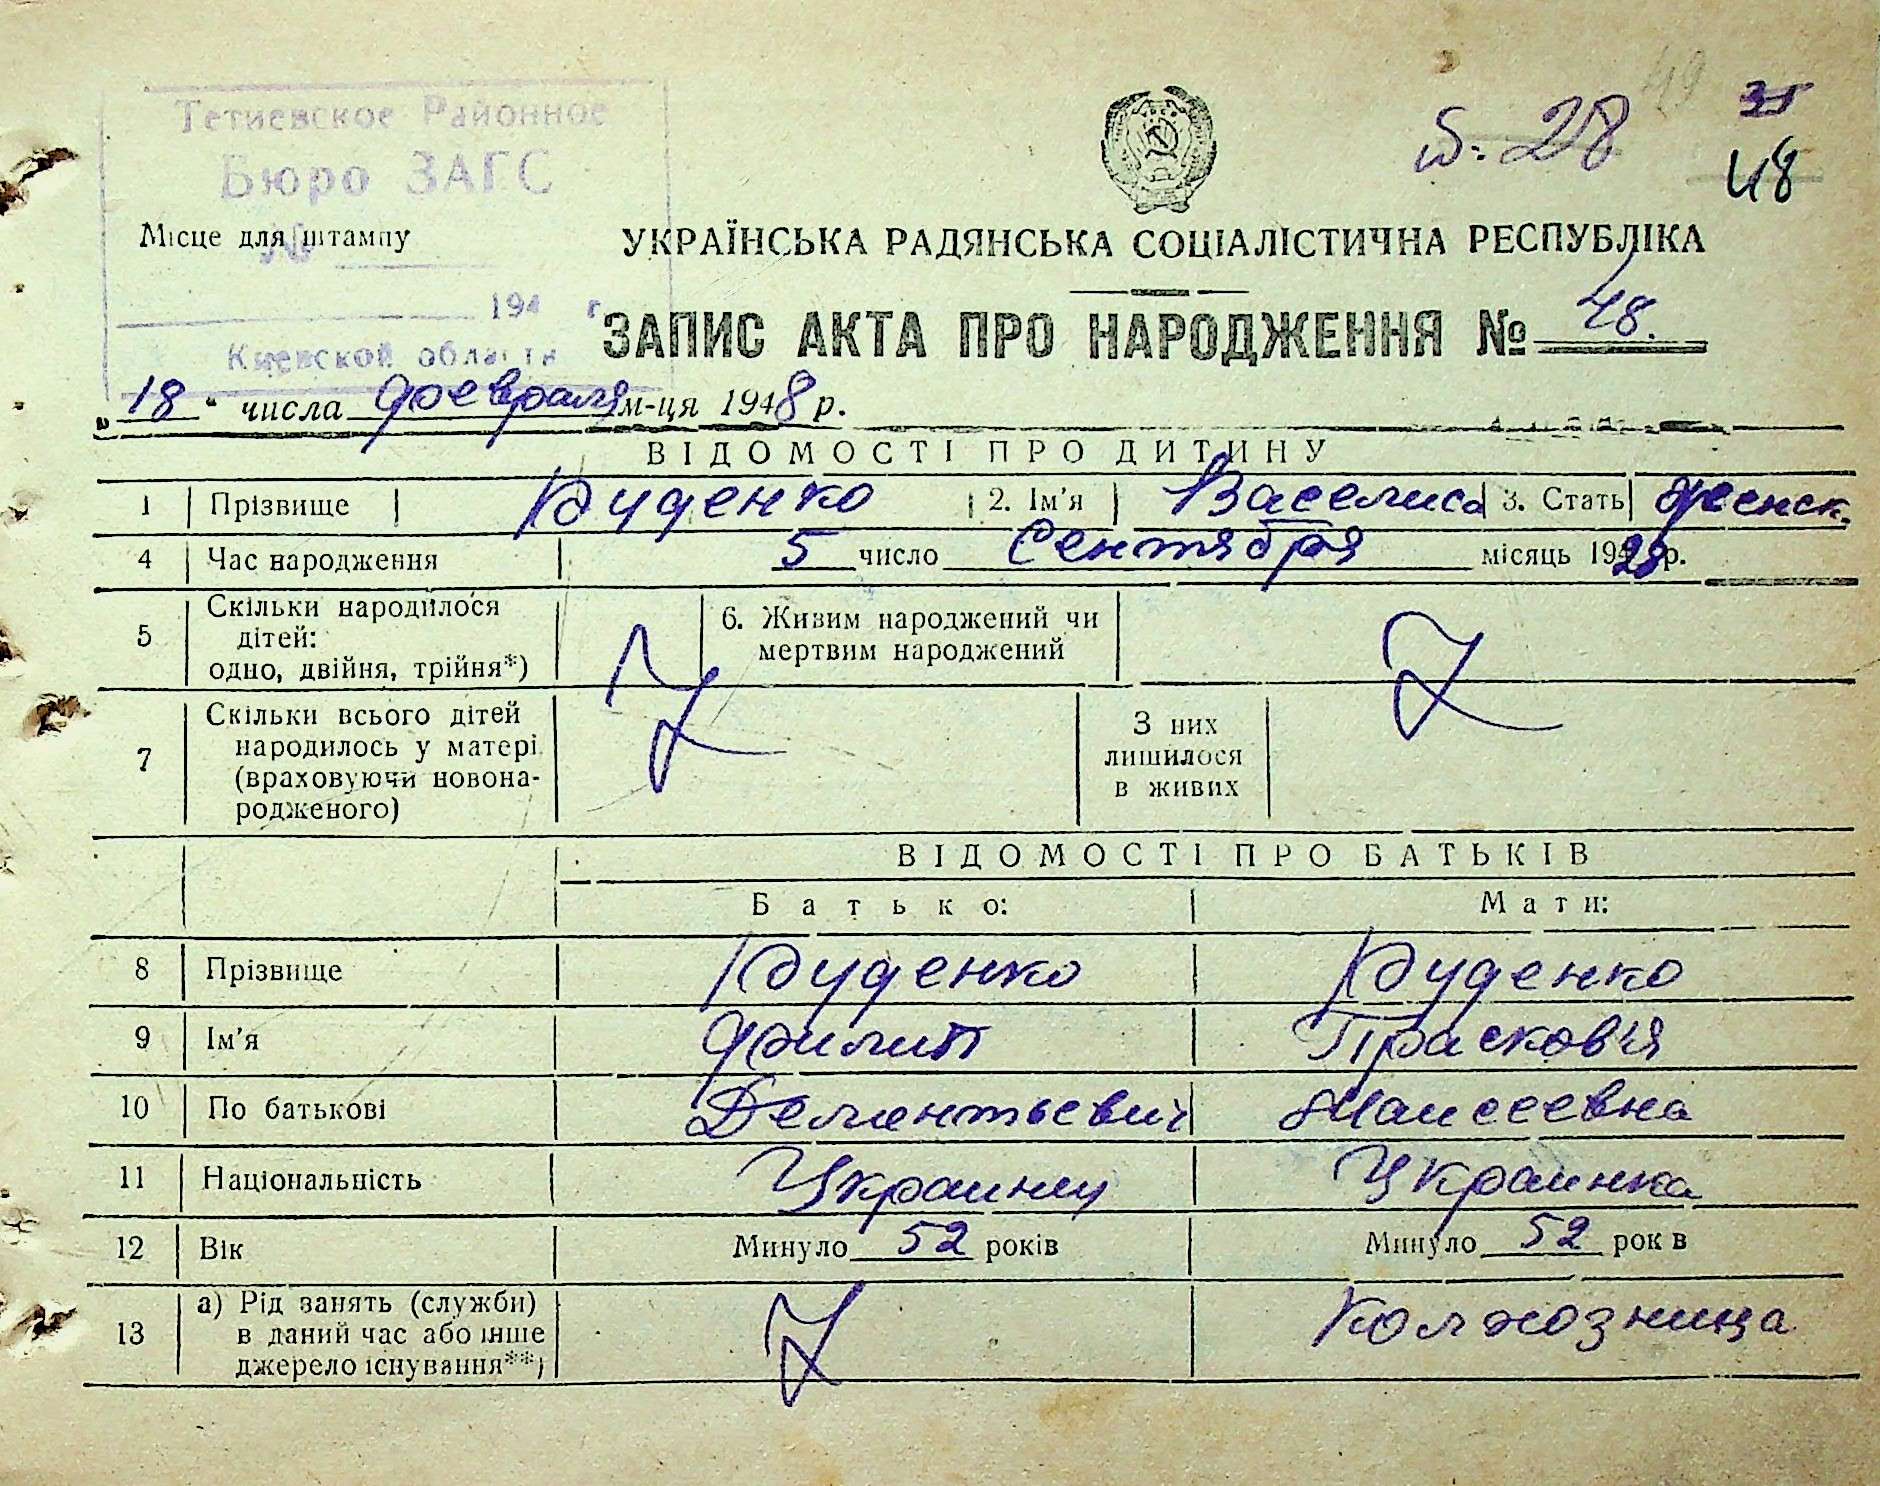 49 35
№ 28 48
Тетиевское Районное
Бюро ЗАГС
Місце для штампу
№
194 г.
Киевской области
УКРАЇНСЬКА РАДЯНСЬКА СОЦІАЛІСТИЧНА РЕСПУБЛІКА
ЗАПИС АКТА ПРО НАРОДЖЕННЯ № 48.
„18“ числа февраля м-ця 1948 р.
ВІДОМОСТІ ПРО ДИТИНУ
1 Прізвище Руденко 2. Ім'я Васелиса 3. Стать женск.
4 Час народження 5 число Сентября місяць 1928 р.
5 Скільки народилося
дітей:
одно, двійня, трійня*)
6. Живим народжений чи
мертвим народжений
7 Скільки всього дітей
народилось у матері
(враховуючи новона-
родженого)
З них
лишилося
в живих
ВІДОМОСТІ ПРО БАТЬКІВ
Батько: Мати:
8 Прізвище Руденко Руденко
9 Ім'я Филип Прасков'я
10 По батькові Дементьевич Маисеевна
11 Національність Украинец Украинка
12 Вік Минуло 52 років Минуло 52 рок в
13 а) Рід занять (служби)
в даний час або інше
джерело існування**)
Колхозница